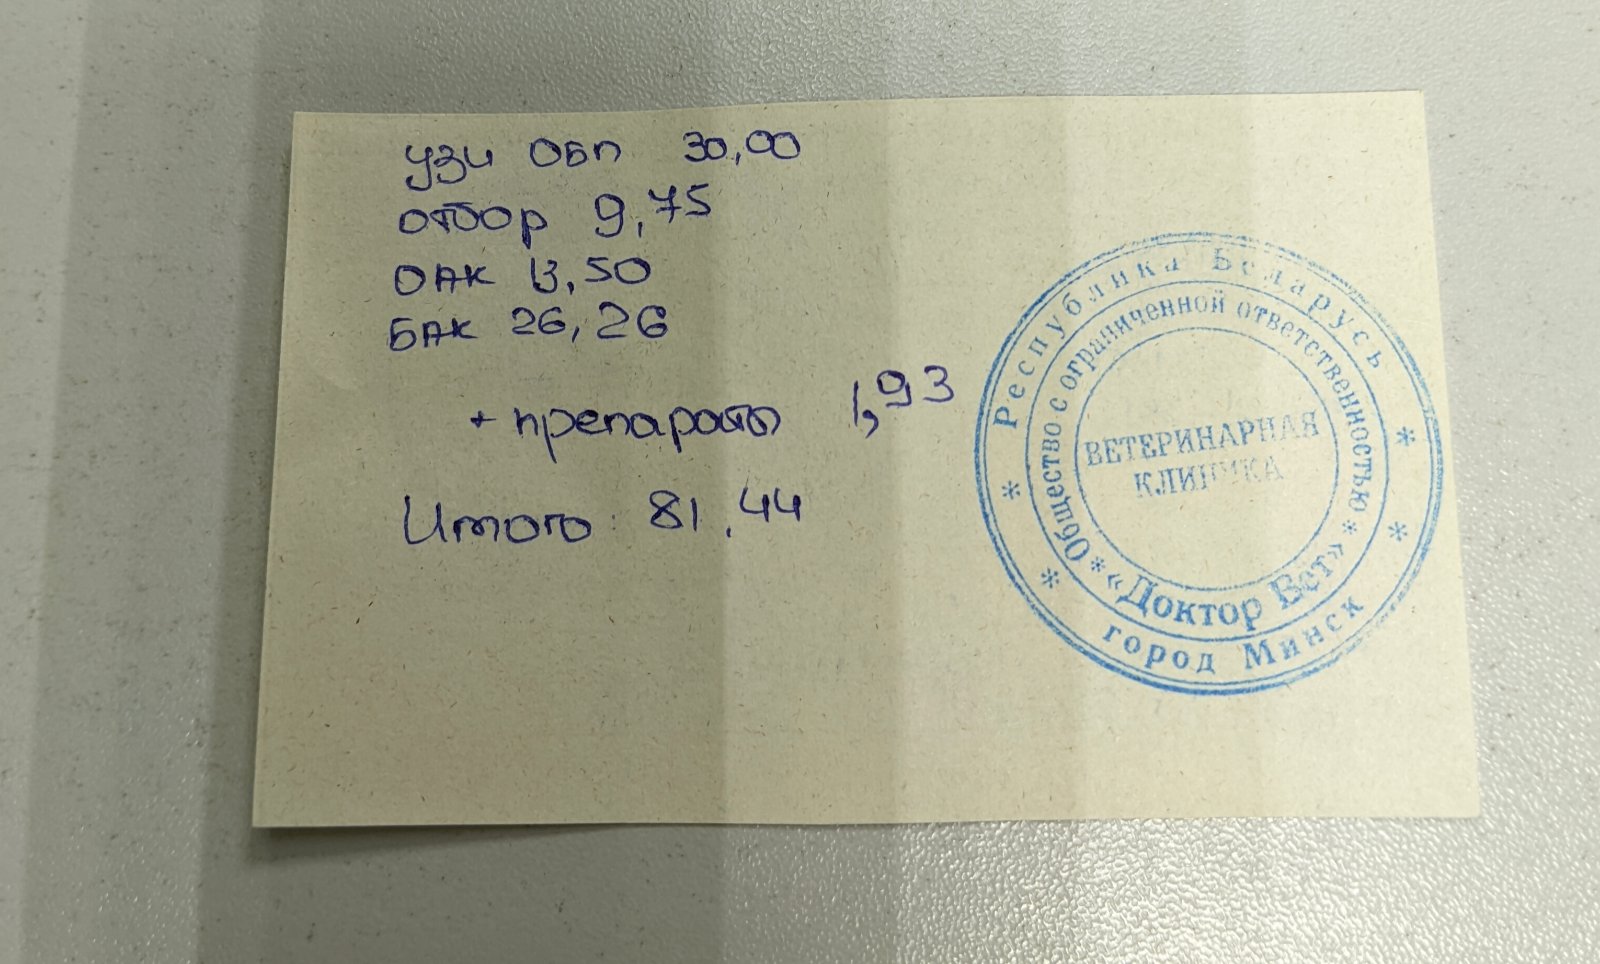 УЗИ ОБП 30,00
отбор 9,75
ОАК 13,50
БАК 26,26
+ препараты 1,93
Итого: 81,44
Республика Беларусь
Общество с ограниченной ответственностью
ВЕТЕРИНАРНАЯ
КЛИНИКА
«Доктор Вет»
город Минск